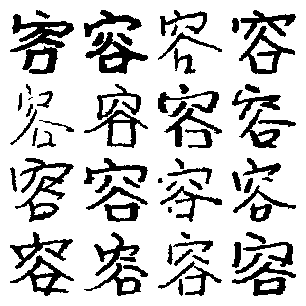 容容容容
容容容容
容容容容
容容容容